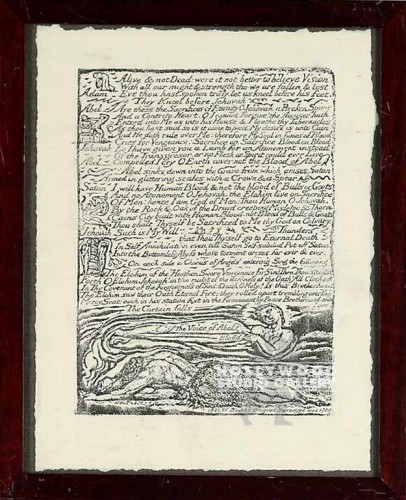 Alive & not Dead: were it not better to believe Vision
With all our might & strength tho we are fallen & lost
Adam Eve thou hast spoken truly. let us kneel before his feet.
They Kneel before Jehovah
Abel Are these the Sacrifices of Eternity O Jehovah, a Broken Spirit
And a Contrite Heart. O I cannot Forgive! the Accuser hath
Enterd into Me as into his House & I loathe thy Tabernacles
As thou hast said so is it come to pass: My desire is unto Cain
And He doth rule over Me: therefore My Soul in fumes of Blood
Cries for Vengeance: Sacrifice on Sacrifice Blood on Blood
Jehovah Lo I have given you a Lamb for an Atonement instead
Of the Transgressor, or no Flesh or Spirit could ever Live
Abel Compelled I cry O Earth cover not the Blood of Abel
Abel sinks down into the Grave. from which arises Satan
Armed in glittering scales with a Crown & a Spear
Satan I will have Human Blood & not the blood of Bulls or Goats
And no Atonement O Jehovah the Elohim live on Sacrifice
Of Men: hence I am God of Men: Thou Human O Jehovah.
By the Rock & Oak of the Druid creeping Mistletoe & Thorn
Cains City built with Human Blood, not Blood of Bulls & Goats
Thou shalt Thyself be Sacrificed to Me thy God on Calvary
Jehovah Such is My Will Thunders
that Thou Thyself go to Eternal Death
In Self Annihilation even till Satan Self-subdud Put off Satan
Into the Bottomless Abyss whose torment arises for ever & ever.
On each side a Chorus of Angels entering Sing the following
The Elohim of the Heathen Swore Vengeance for Sin! Then Thou stoodst
Forth O Elohim Jehovah! in the midst of the darkness of the Oath! All Clothed
In Thy Covenant of the Forgiveness of Sins: Death O Holy! Is this Brotherhood
The Elohim saw their Oath Eternal Fire; they rolled apart trembling over The
Mercy Seat: each in his station fixt in the Firmament by Peace Brotherhood and Love.
The Curtain falls
The Voice of Abels
Blood
HOLLYWOOD
STUDIO GALLERY
1822 W Blakes Original Stereotype was 1788